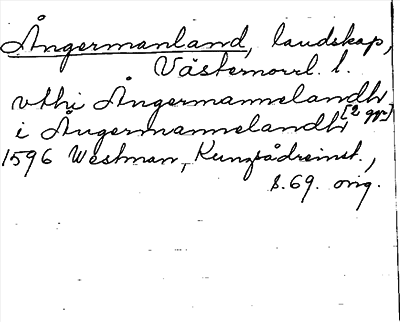 Ångermanland, landskap,
Västernorrl. l.
vthi Ångermannelandh
i Ångermannelandh [2 ggr]
1596 Westman, Kungsådreinst.,
s. 69. orig.